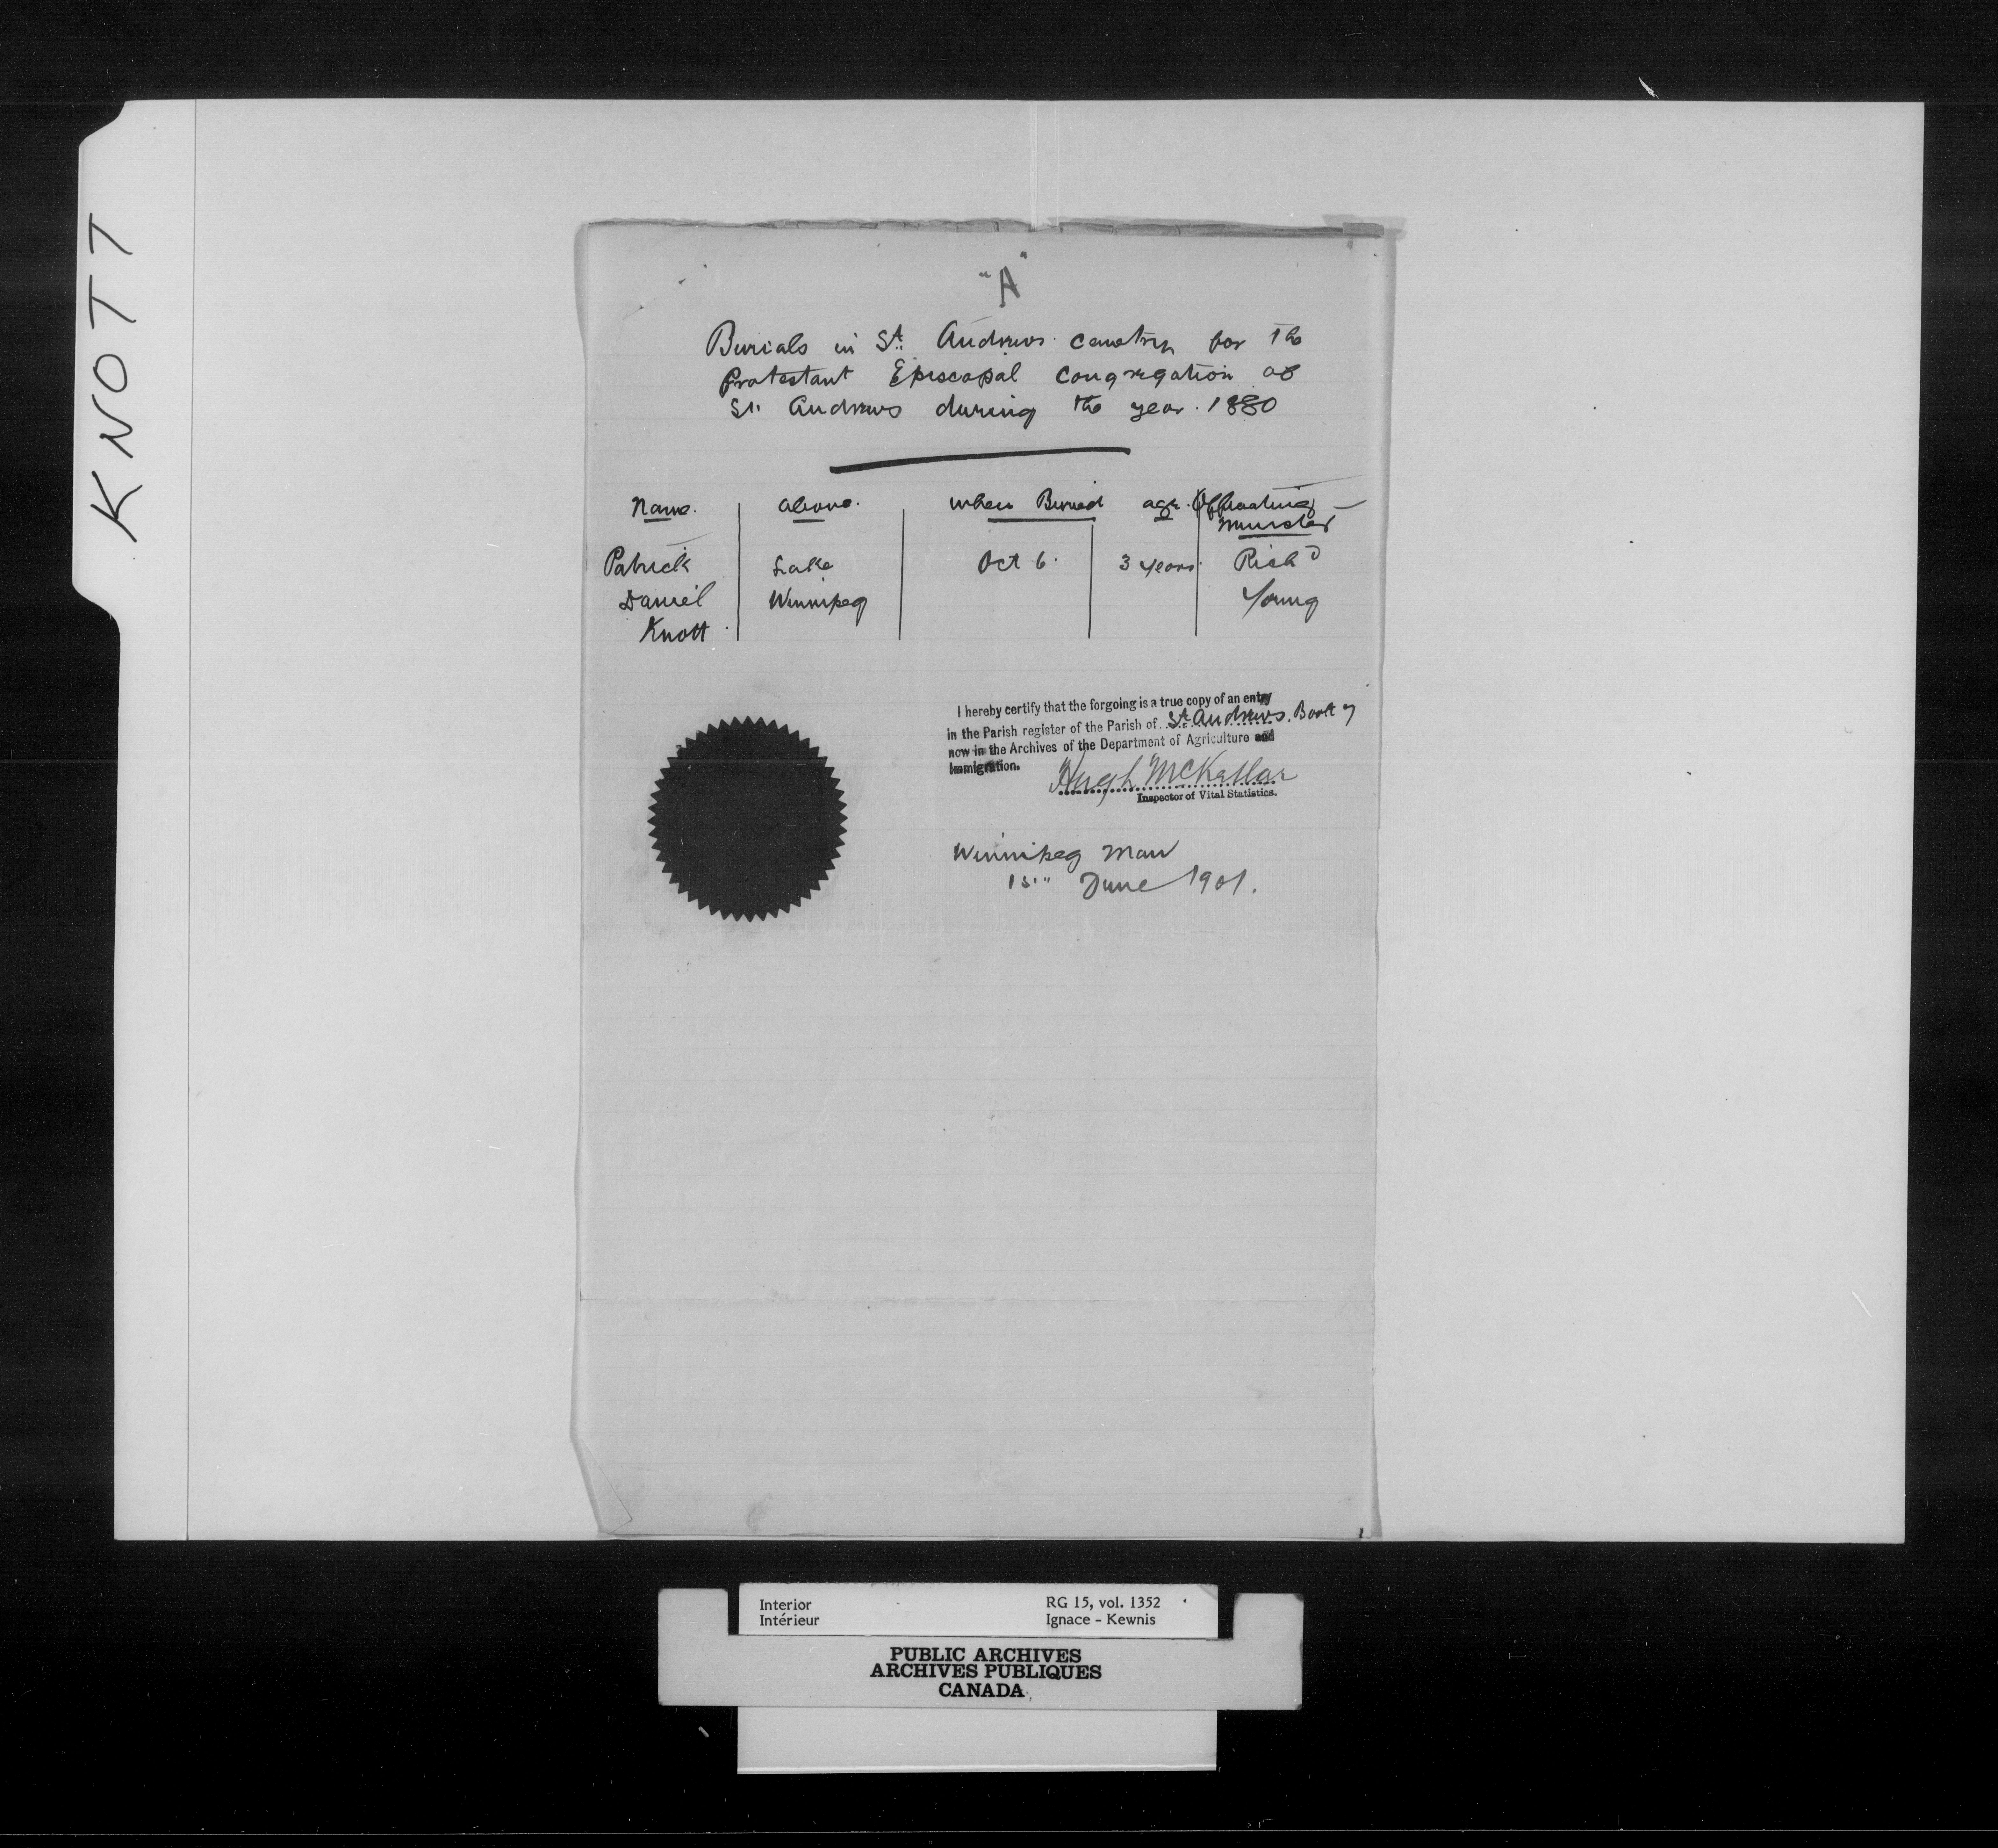 KNOTT
"A"
Burials in St. Andrews Cemetry for the
Protestant Episcopal Congregation of
St. Andrews during the year 1880
Name. Above. When Buried age. Officiating
Minister
Patrick Lake Oct 6. 3 years Rich'd
Daniel Winnipeg Young
Knott
I hereby certify that the forgoing is a true copy of an entry
in the Parish register of the Parish of St. Andrews, Book
now in the Archives of the Department of Agriculture and
Immigration.
Hugh McKellar
Inspector of Vital Statistics.
Winnipeg Man
15" June 1901.
Interior RG 15, vol. 1352
Intérieur Ignace - Kewnis
PUBLIC ARCHIVES
ARCHIVES PUBLIQUES
CANADA